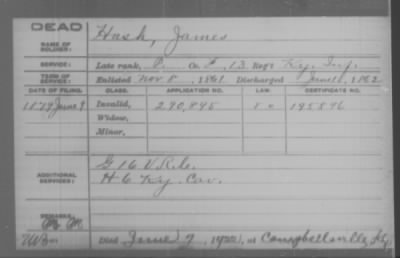 DEAD
NAME OF SOLDIER: Hash, James
SERVICE: Late rank, P. Co. F, 13 Reg't Ky. Inf.
TERM OF SERVICE: Enlisted Nov 8, 1861 Discharged June 11, 1862
DATE OF FILING. CLASS. APPLICATION NO. LAW. CERTIFICATE NO.
1879 June 9 Invalid, 290,895 195896
Widow,
Minor,
ADDITIONAL SERVICES: G 16 V.R.C.
H 6 Ky. Cav.
REMARKS:
Died June 9, 1922, at Campbellsville, Ky